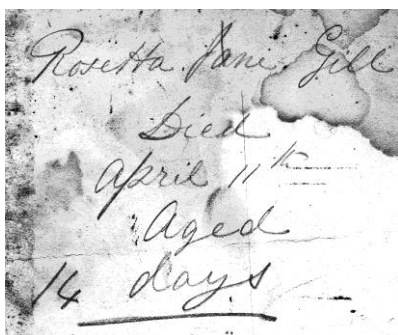 Rosetta Jane Gill
Died
April 11th
Aged
14 days